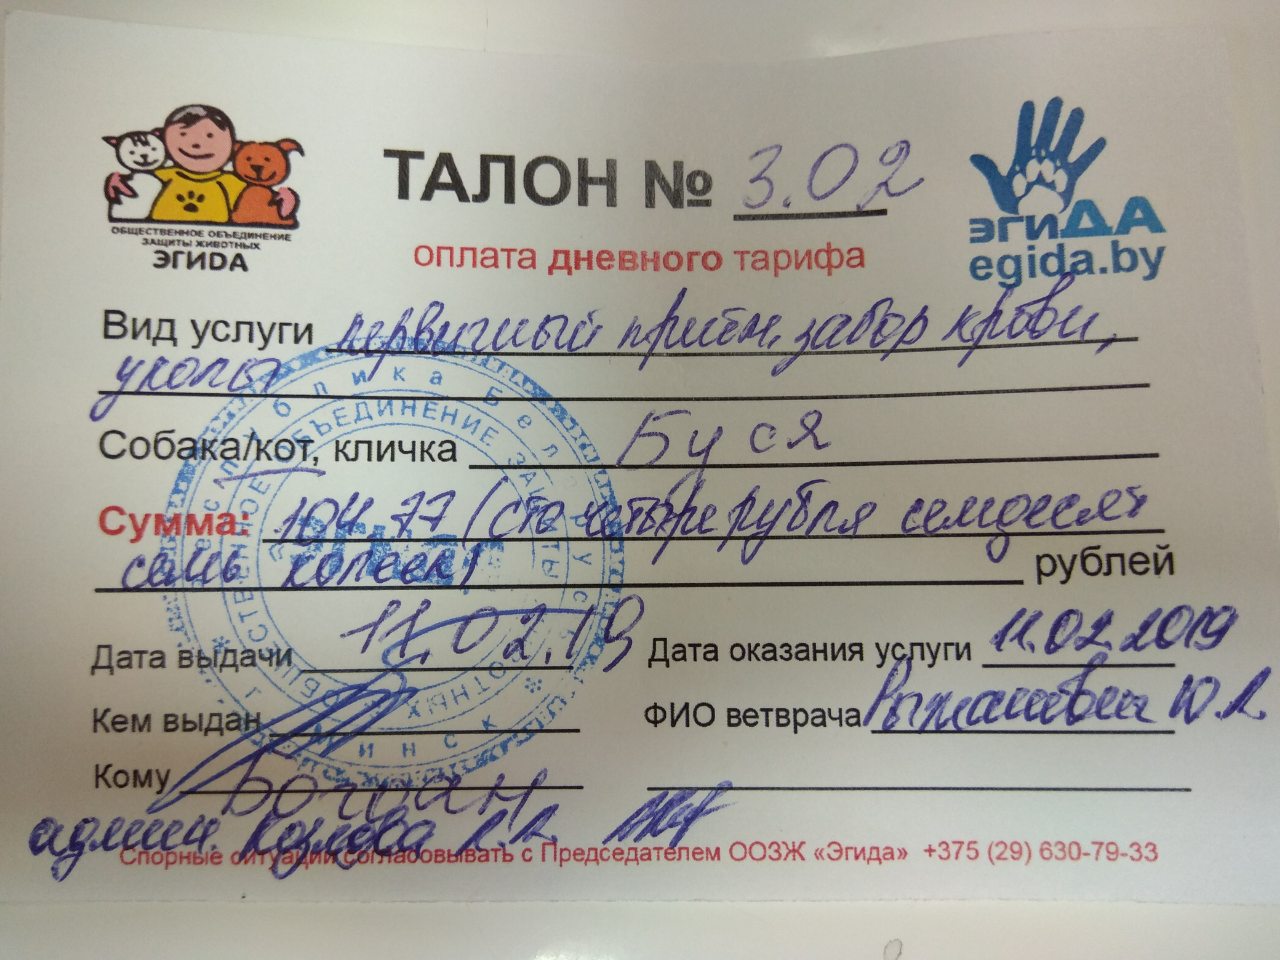 ОБЩЕСТВЕННОЕ ОБЪЕДИНЕНИЕ
ЗАЩИТЫ ЖИВОТНЫХ
ЭГИDА
ТАЛОН № 3.02
оплата дневного тарифа
эгиДА
egida.by
Вид услуги первичный приём, забор крови,
уколы
Собака/кот, кличка Буся
Сумма: 104,77 (сто четыре рубля семдесят
семь копеек) рублей
Дата выдачи 11.02.19
Дата оказания услуги 11.02.2019
Кем выдан
ФИО ветврача Ю.А.
Кому Богдан
админ. Козлова А.А.
Спорные ситуации согласовывать с Председателем ООЗЖ «Эгида» +375 (29) 630-79-33
Республика Беларусь
ОБЩЕСТВЕННОЕ ОБЪЕДИНЕНИЕ ЗАЩИТЫ ЖИВОТНЫХ
г. Минск